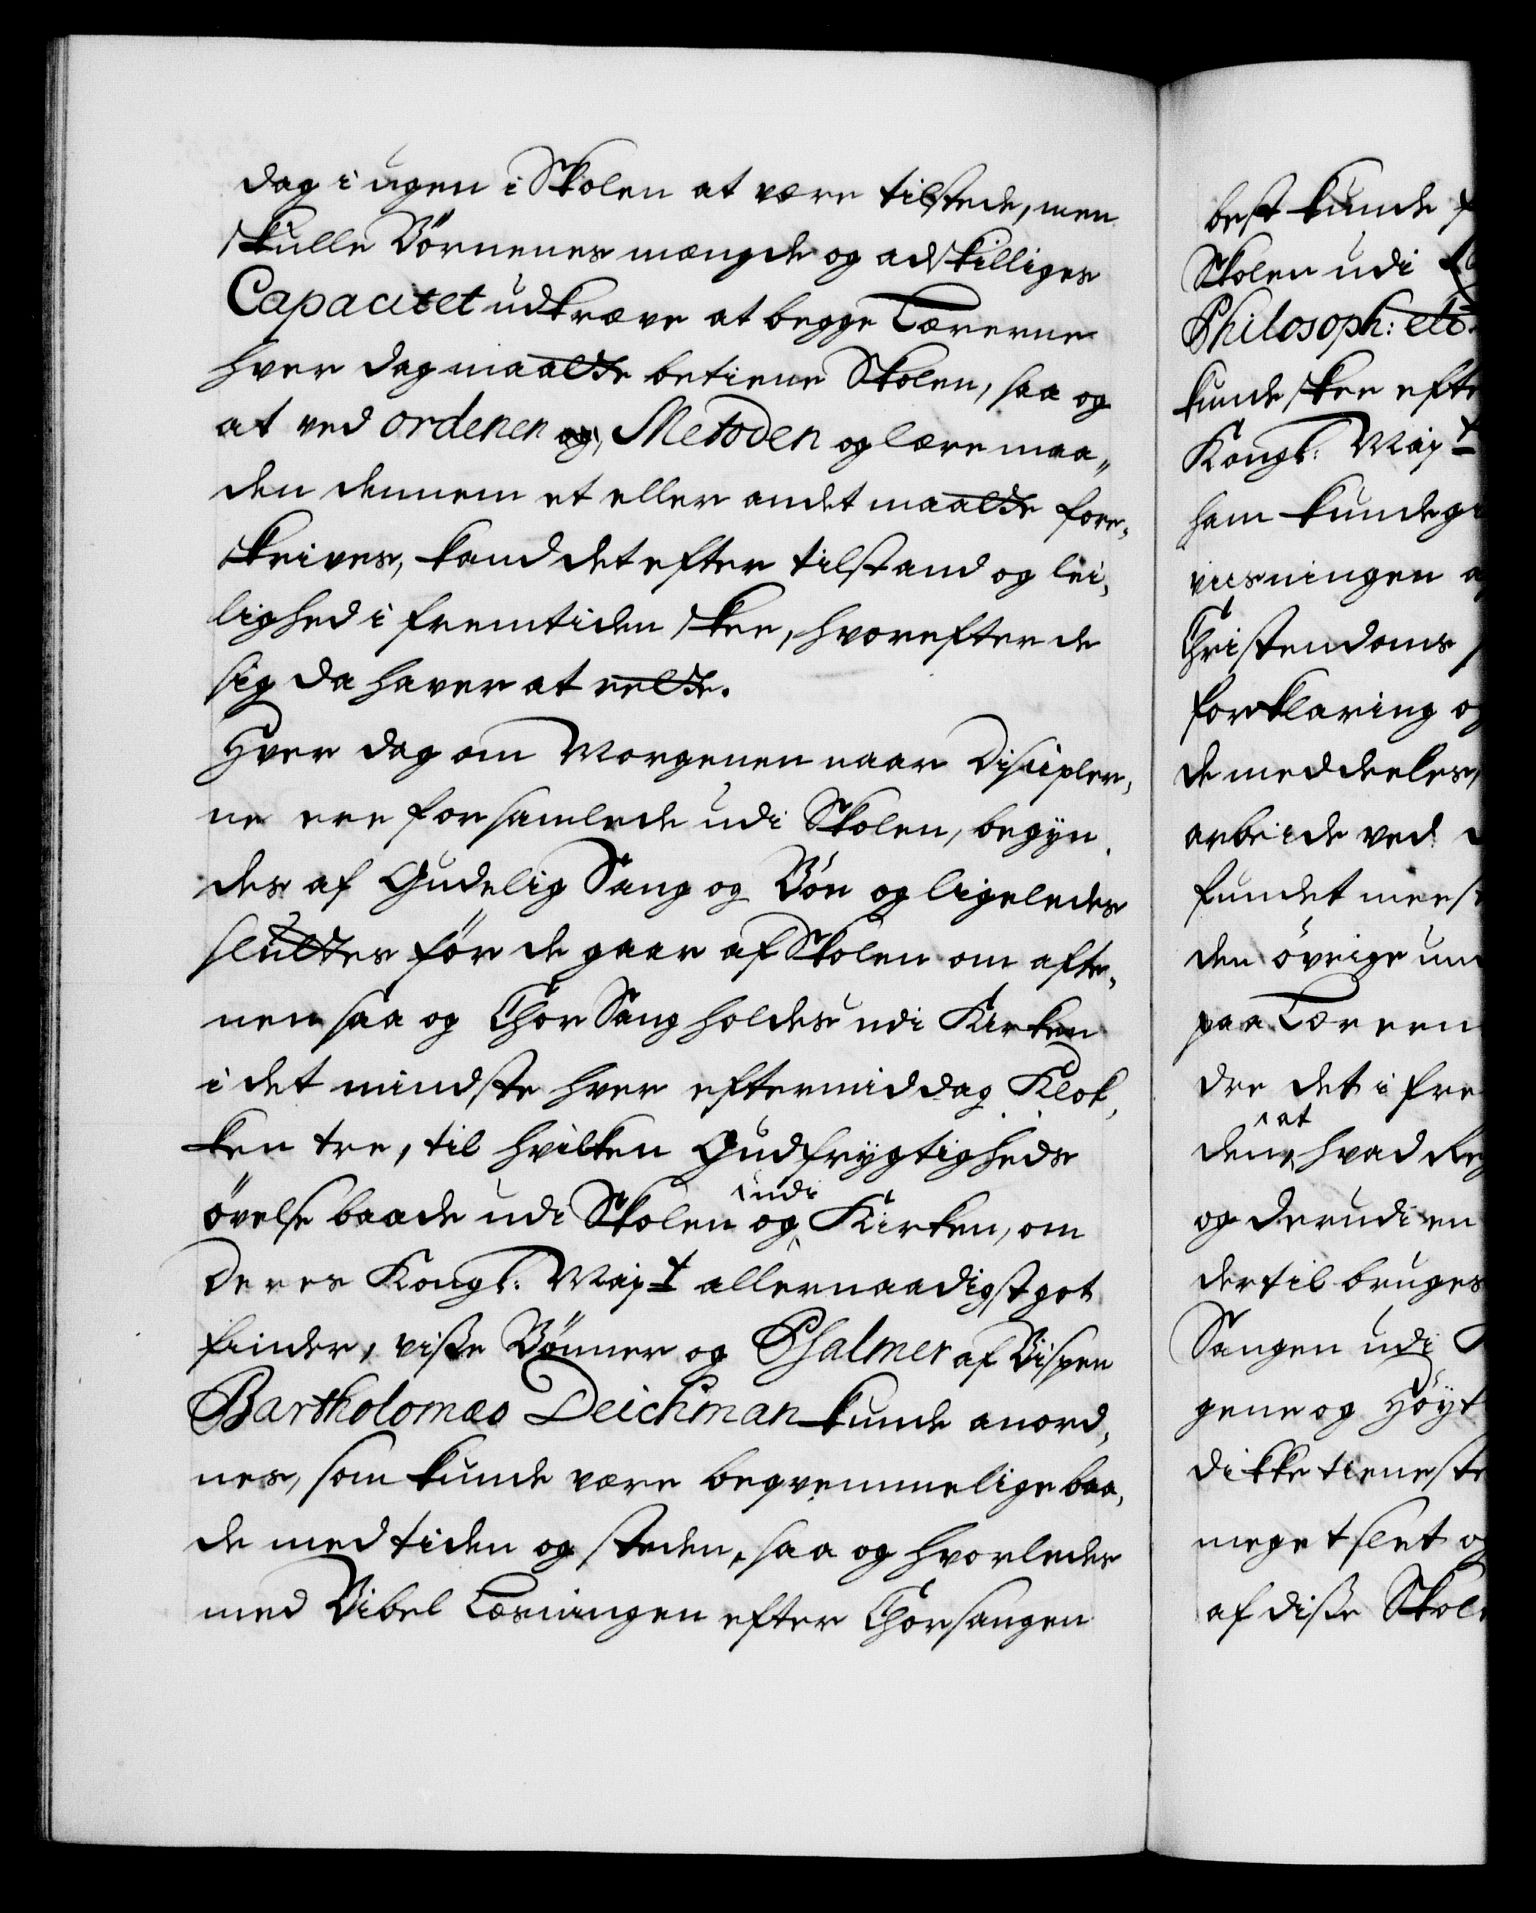 dag i ugen i Skolen at være tilstede, men
skulle Börnenes mængde og adskilliges
Capacitet udkræve at begge Lærerne
hver dag maatte betiene Skolen, saa og
at ved ordenen og Metoden og læremaa„
den dennem et eller andet maatte fore„
skrives, kand det efter tilstand og lei„
lighed i fremtiden skee, hvorefter de
sig da haver at rette.
Hver dag om Morgenen naar Discipler„
ne ere forsamlede udi Skolen, begyn„
des af Gudelig Sang og Bön og ligeledes
sluttes för de gaar af Skolen om afte„
nen saa og Chor Sang holdes udi Kirken
i det mindste hver eftermiddag Klok„
ken tre, til hvilken Gudfrygtigheds
övelse baade udi Skolen og udi Kirken, om
Deres Kongl. Mayt allernaadigst got
finder, visse Bönner og Psalmer af Bispen
Bartholomæo Deichman kunde anord„
nes, som kunde være beqvemmelige baa„
de med tiden og steden, saa og hvorledes
med Bibel Læsningen efter Chorsangen
best kunde
Skolen udi
Philosoph: etc.
kunde skee efte
Kongl. Mayt
ham kunde gi
viisningen a
Christendoms
forklaring og
de meddeeles,
arbeide ved
fundet meest
den övrige un
paa Læreren
dre det i fre
den, at hvad Reg
og derudi en
dertil bruges
Sangen udi
gene og Höyt
dikke tieneste
meget slet og
af disse Skole